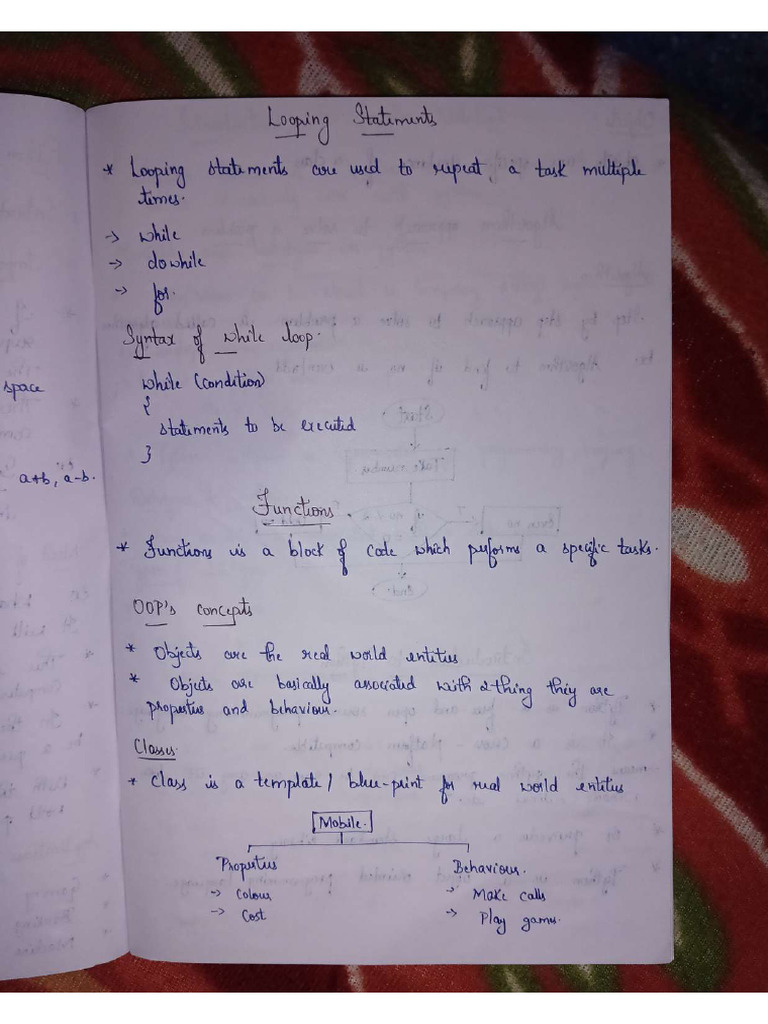 Looping Statements
* Looping statements are used to repeat a task multiple
times.
-> while
-> dowhile
-> for.
Syntax of while loop.
while (condition)
{
statements to be executed
}
space
a+b, a-b.
Functions
* Functions is a block of code which performs a specific tasks.
OOP's concepts
* Objects are the real world entities
* Objects are basically associated with 2 thing they are
properties and behaviour.
Classes:
* Class is a template / blue-print for real world entities
Mobile.
Properties Behaviour.
-> Colour -> Make calls
-> Cost -> Play games.